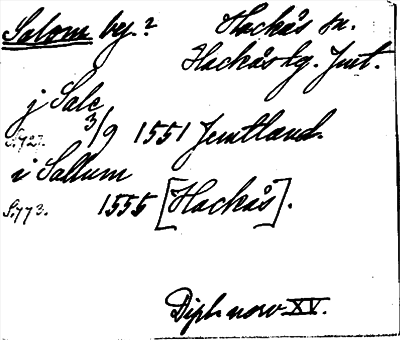 Salom by.? Hackås sn.
Hackås tg. Jmt.
j Sale
S.727. 3/9 1551 Jemtland.
i Sallum
S.773. 1555 [Hackås].
Dipl. norv. XV.